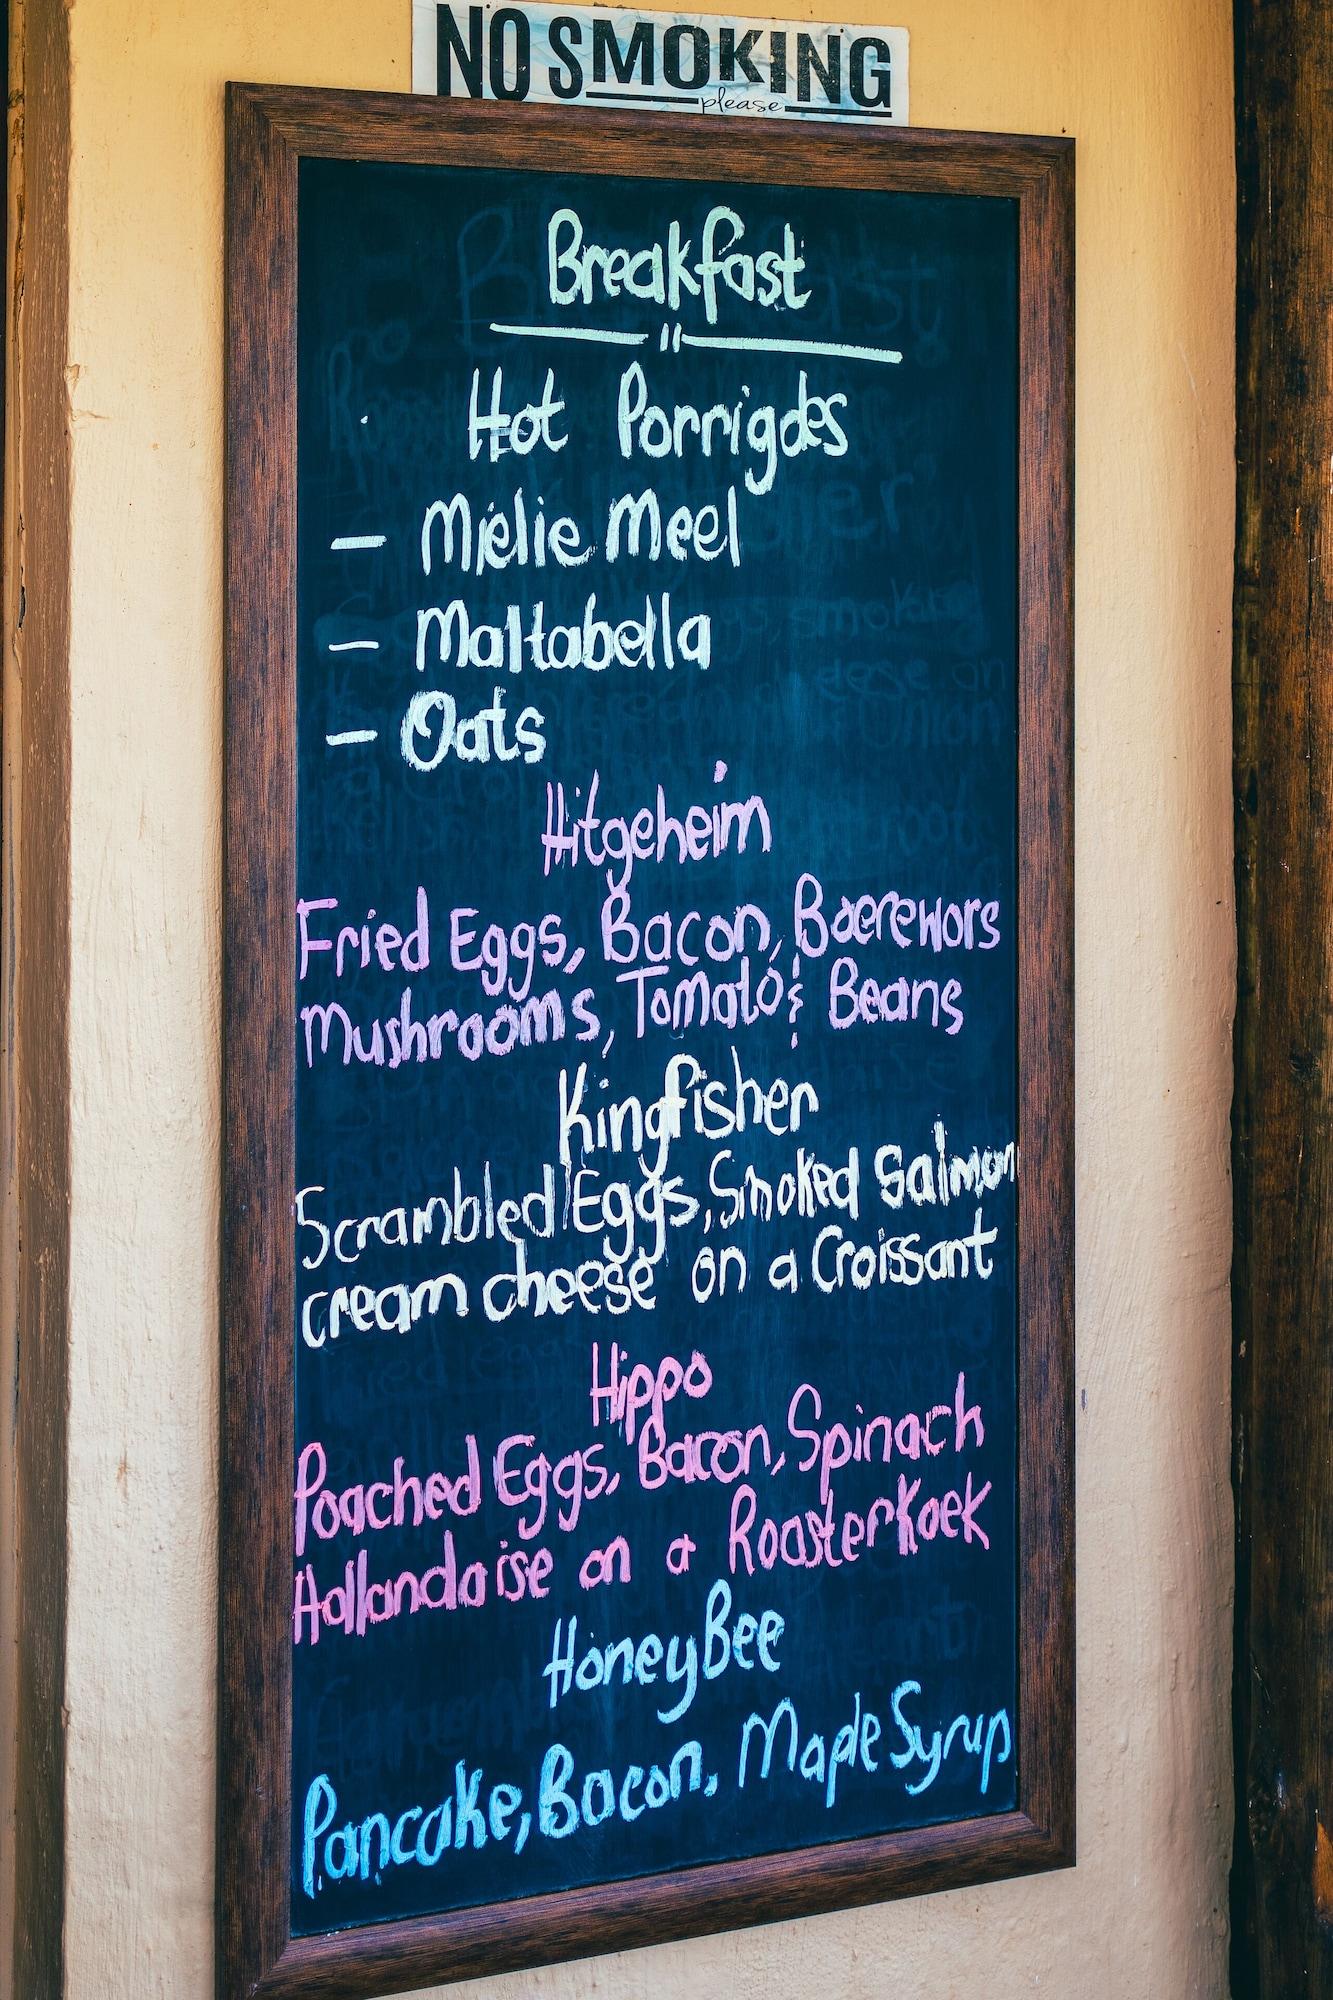 NO SMOKING
please
Breakfast
Hot Porrigdes
- Mielie Meel
- Maltabella
- Oats
Hitgeheim
Fried Eggs, Bacon, Boerewors
Mushrooms, Tomato & Beans
Kingfisher
Scrambled Eggs, Smoked Salmon
cream cheese on a Croissant
Hippo
Poached Eggs, Bacon, Spinach
Hollandaise on a Roosterkoek
HoneyBee
Pancake, Bacon, Maple Syrup